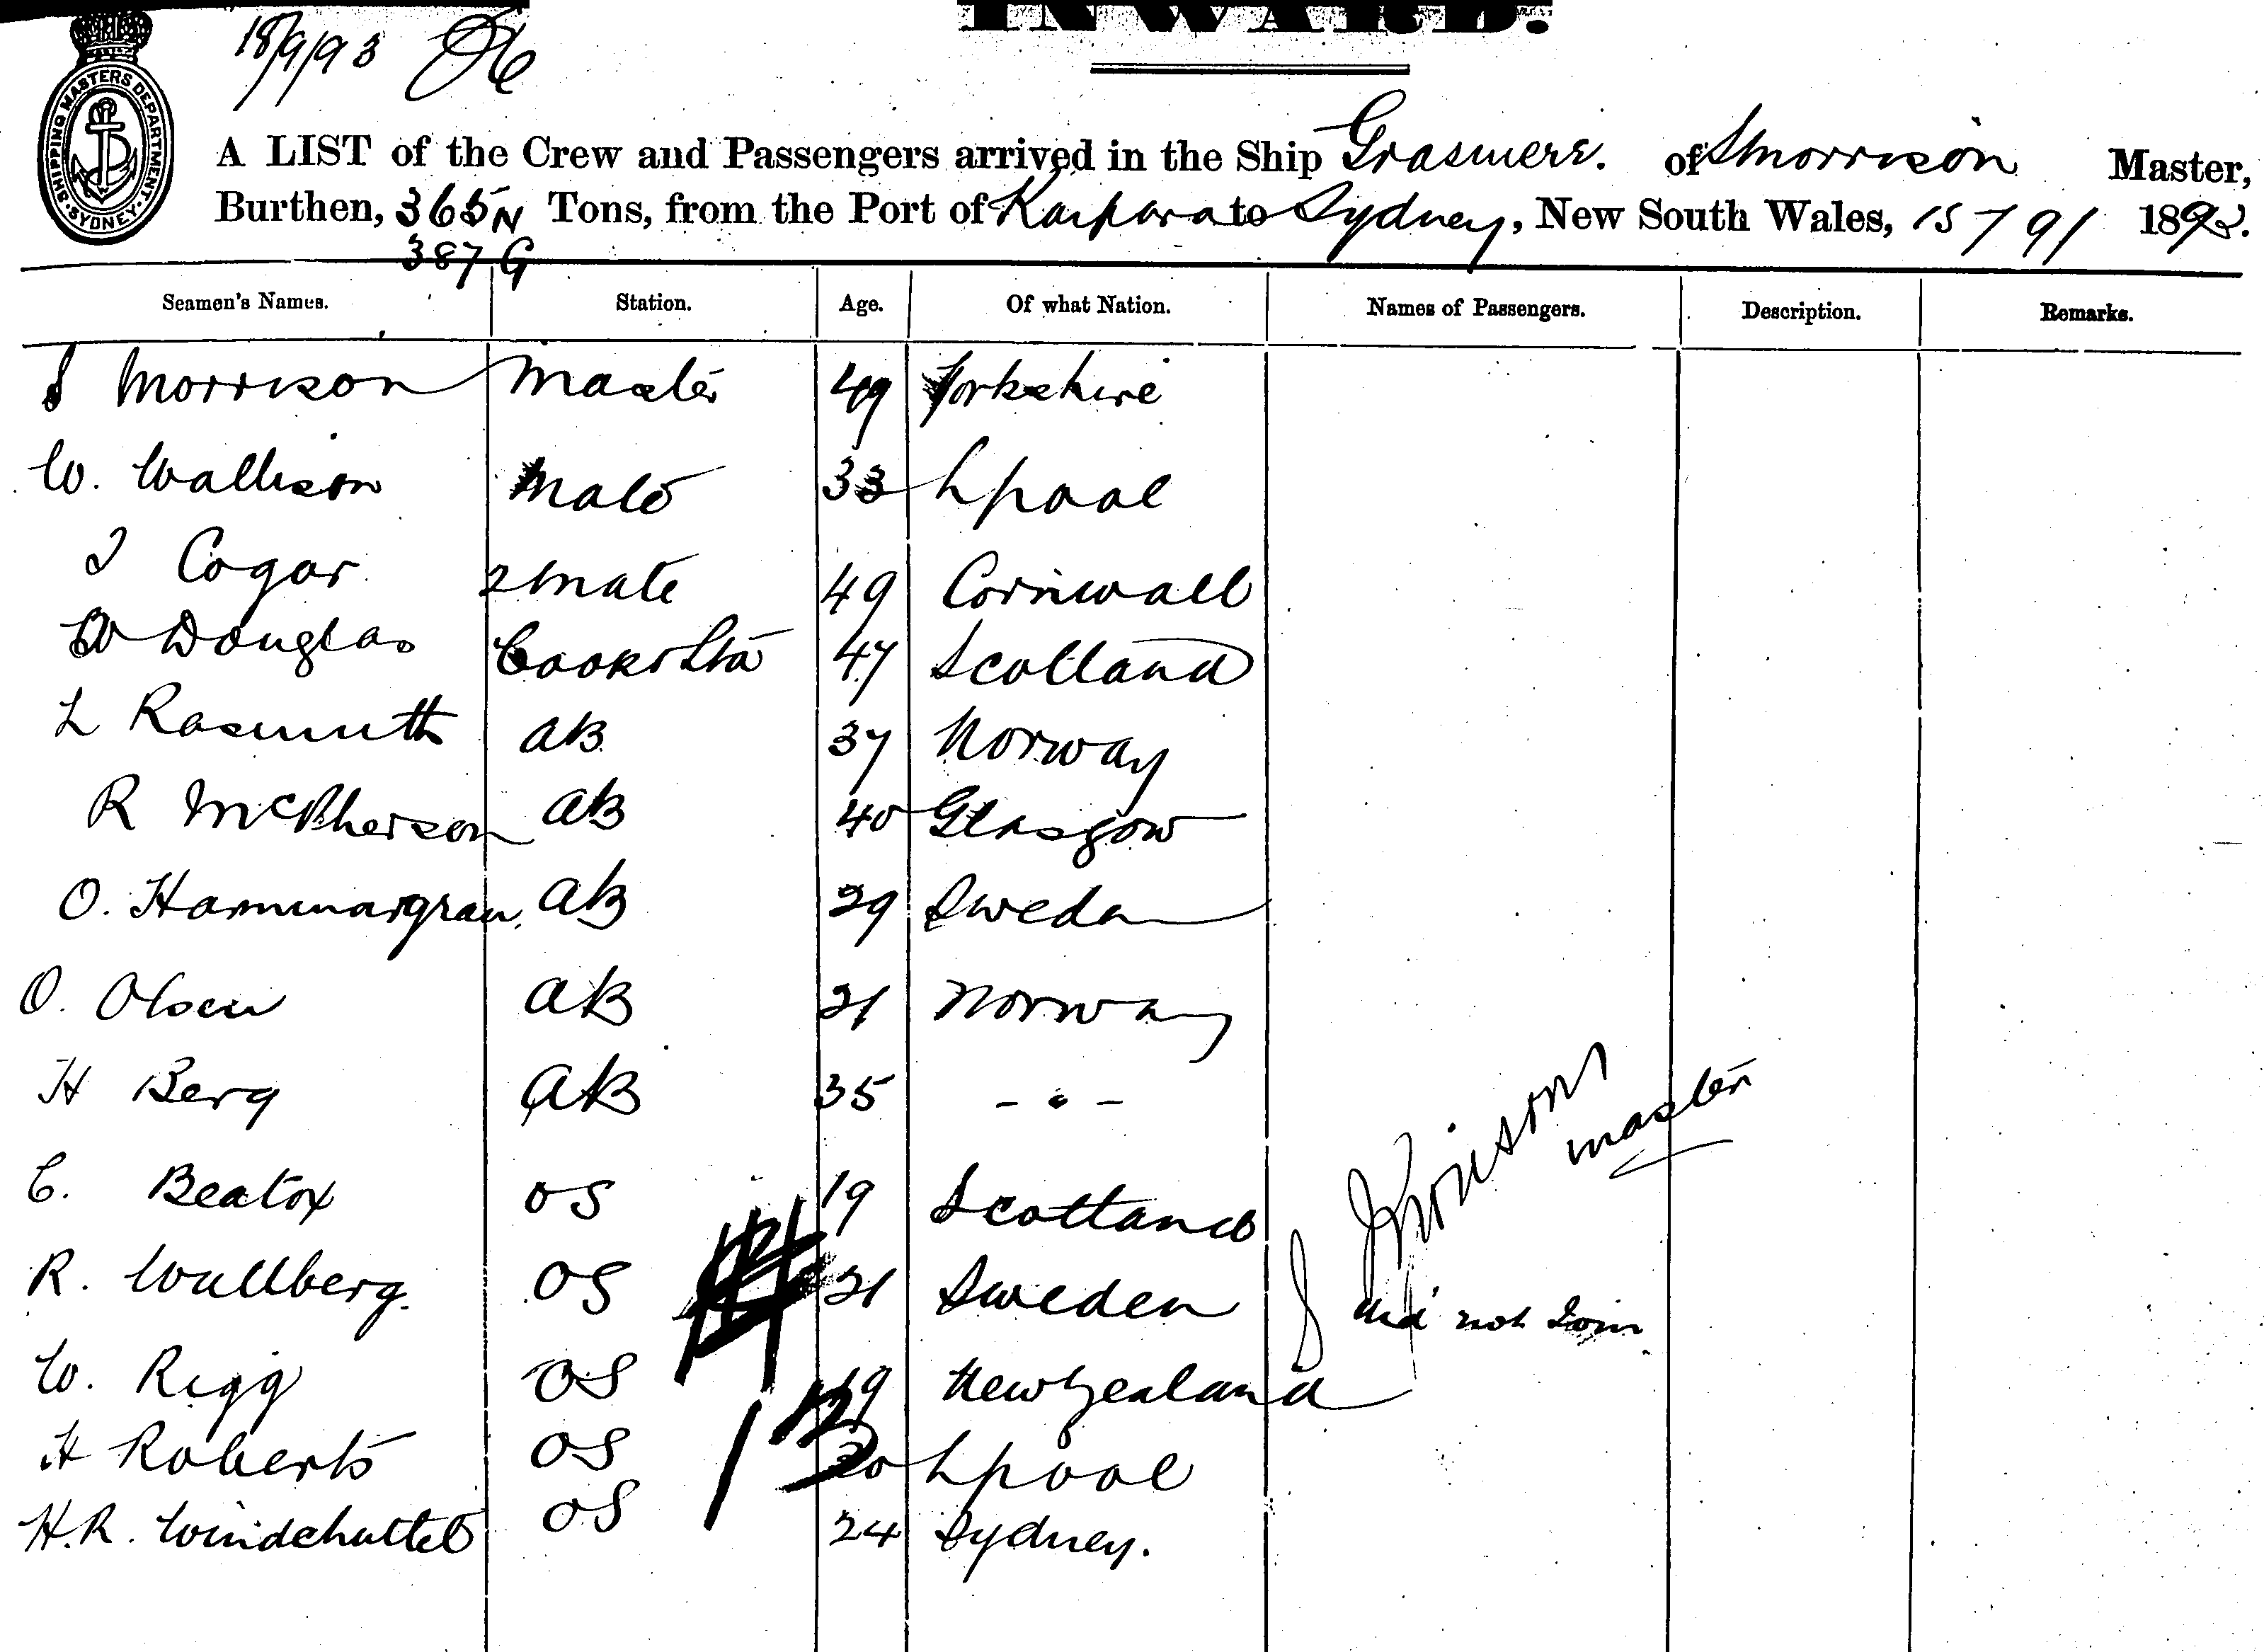 INWARD.
18/9/93
SHIPPING MASTERS DEPARTMENT SYDNEY
A LIST of the Crew and Passengers arrived in the Ship Grasmere. of S Morrison Master,
Burthen, 365 N Tons, from the Port of Kaipara to Sydney, New South Wales, 15/9/ 1893.
387 G
Seamen's Names. Station. Age. Of what Nation. Names of Passengers. Description. Remarks.
S Morrison Master 49 Yorkshire
W. Wallison Mate 33 Lpool
J Cogar 2 Mate 49 Cornwall
W Douglas Cook & Std 47 Scotland
L Rasmuth AB 37 Norway
R McPherson AB 40 Glasgow
O. Hammargran AB 29 Sweden
O. Olsen AB 21 Norway
H Berg AB 35 - " -
C. Beatox OS 19 Scotland
R. Wullberg. OS 21 Sweden did not Join
W. Rigg OS 19 New Zealand
H Roberts OS 20 Lpool
H.R. Windchuttel OS 24 Sydney.
13
S Morrison
master